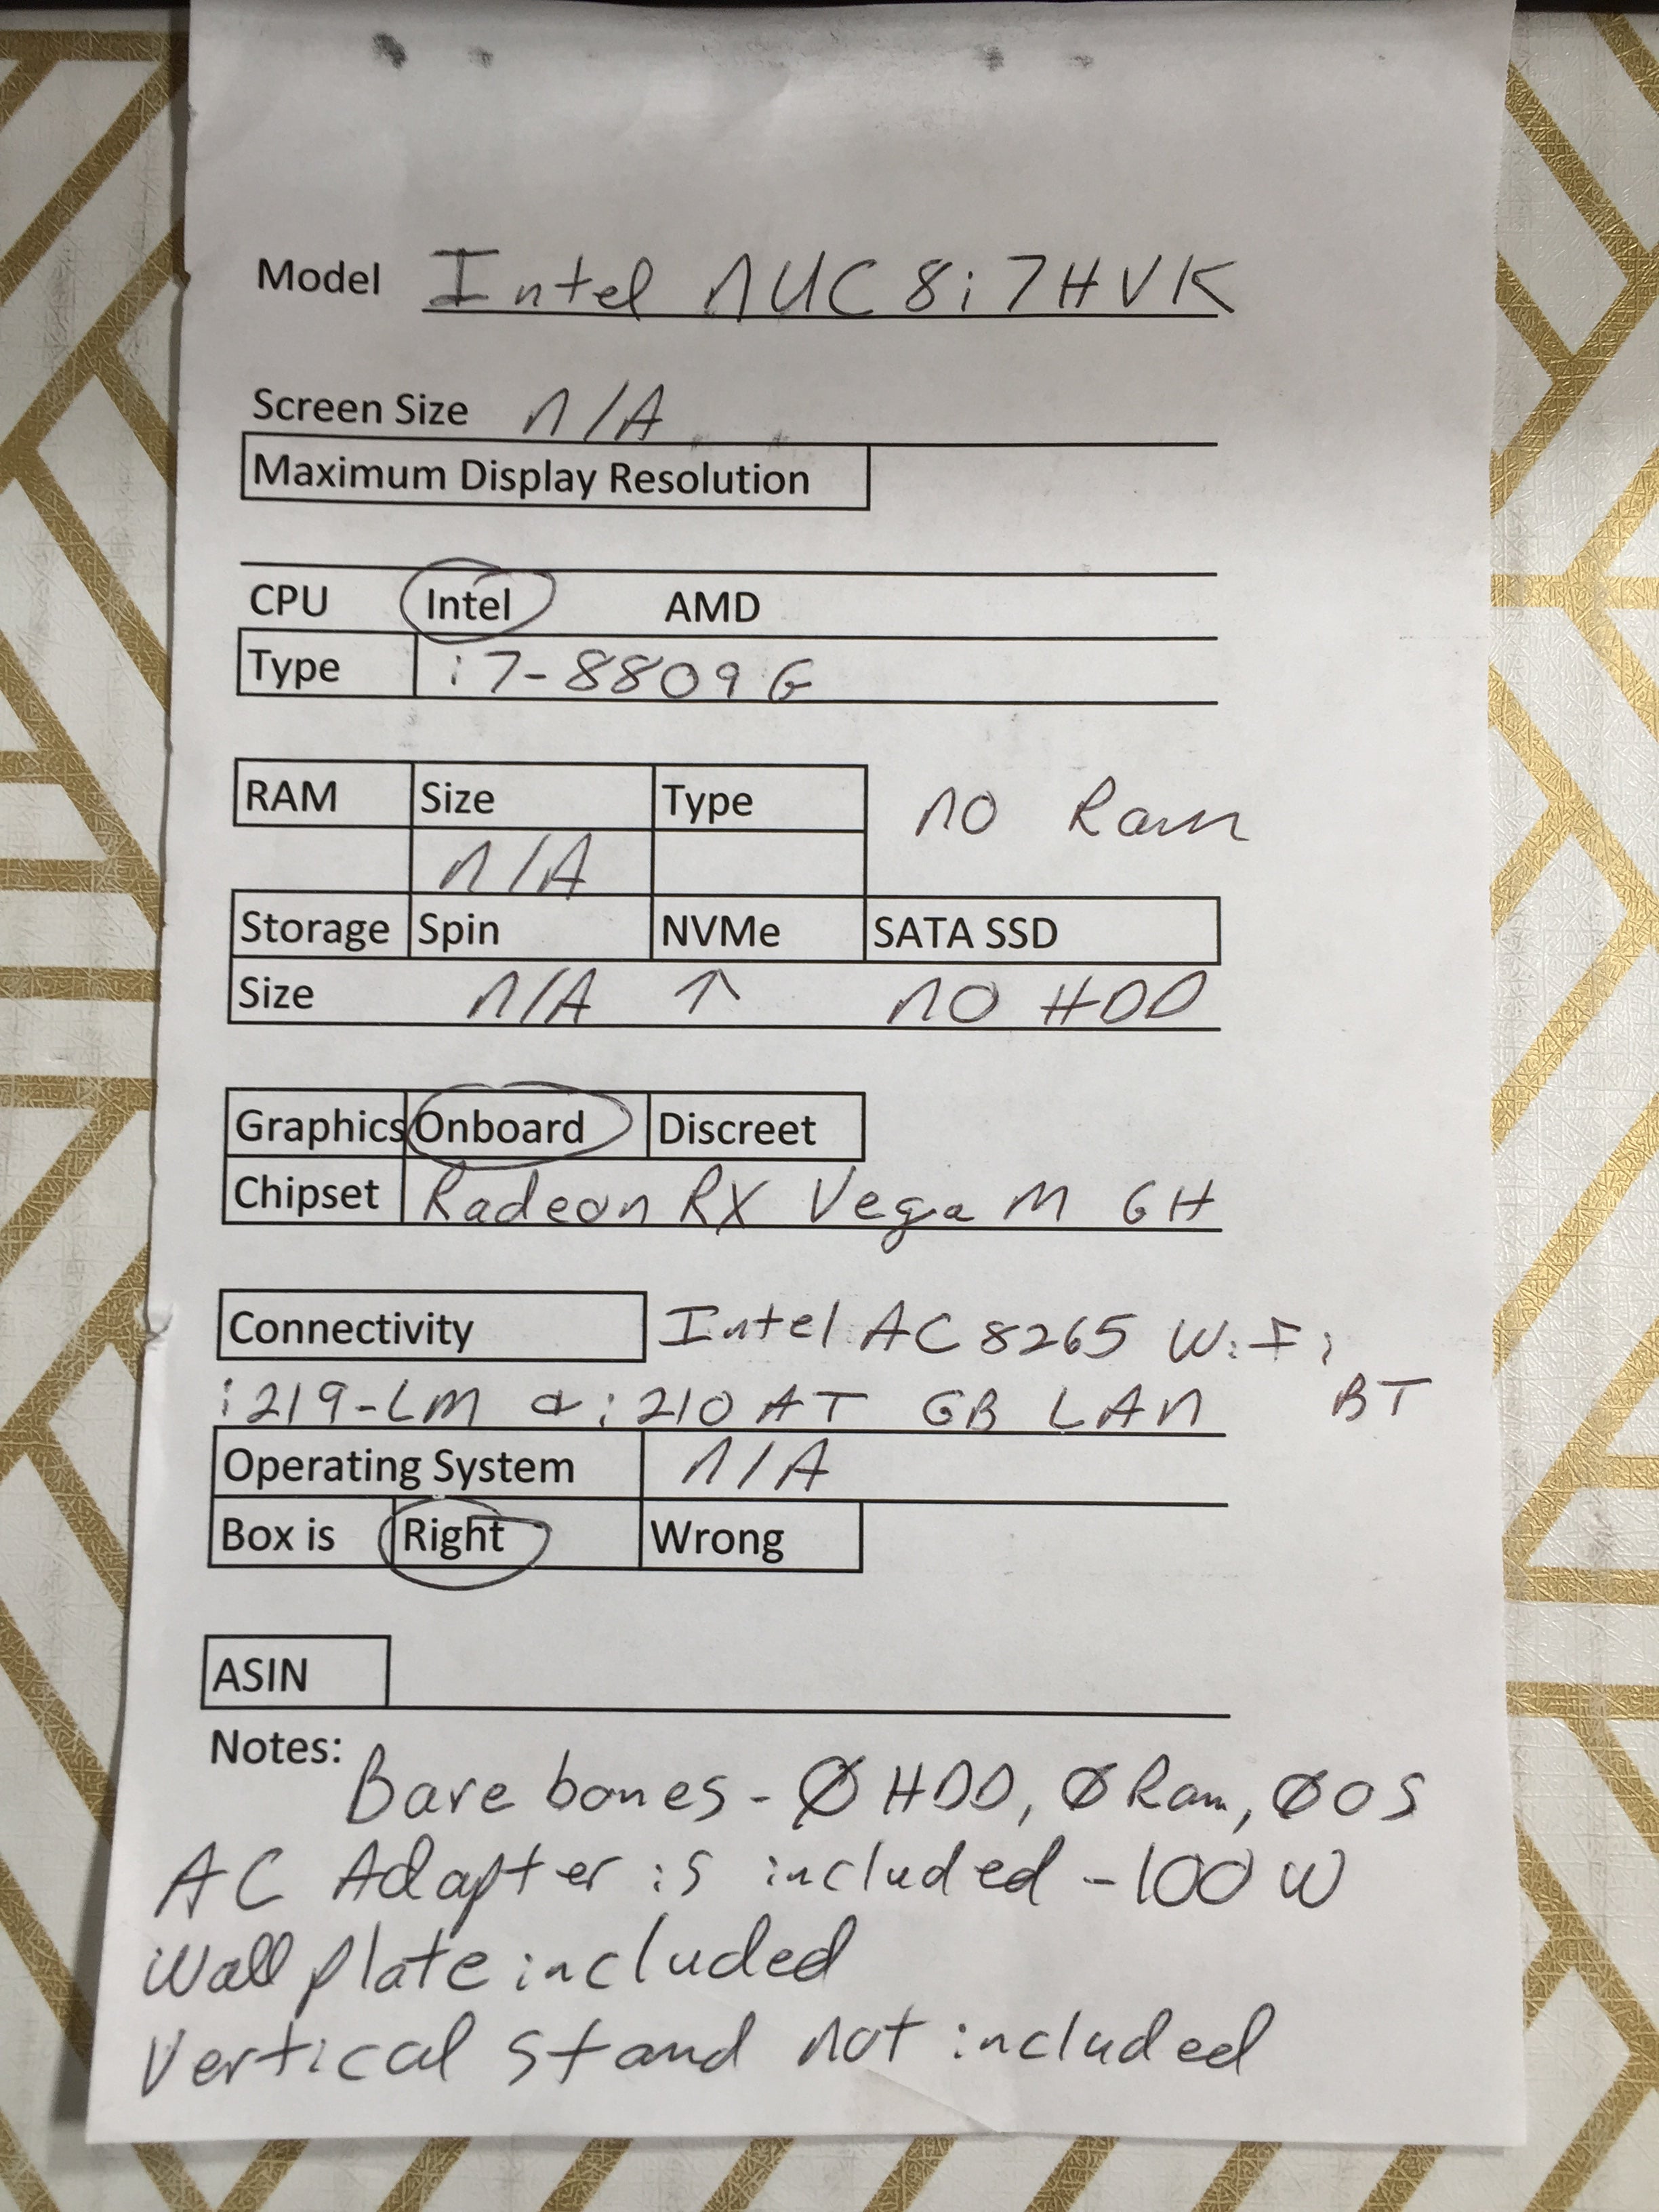 Model Intel NUC8i7HVK
Screen Size N/A
Maximum Display Resolution
CPU Intel AMD
Type i7-8809G
RAM Size Type NO Ram
N/A
Storage Spin NVMe SATA SSD
Size N/A ↑ NO HDD
Graphics Onboard Discreet
Chipset Radeon RX Vega M GH
Connectivity Intel AC8265 WiFi
i219-LM & i210AT GB LAN BT
Operating System N/A
Box is Right Wrong
ASIN
Notes:
Bare bones - Ø HDD, Ø Ram, Ø OS
AC Adapter is included - 100 W
Wall plate included
Vertical stand not included